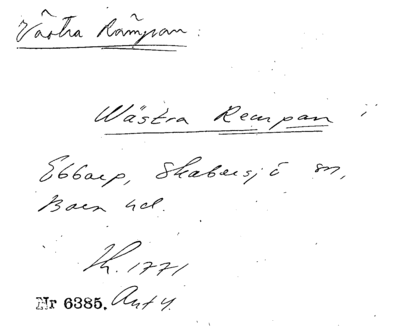 Västra Rämpan:
Wästra Rempan i
Ebbarp, Skabersjö sn,
Bara hd.
1771
Nr 6385.